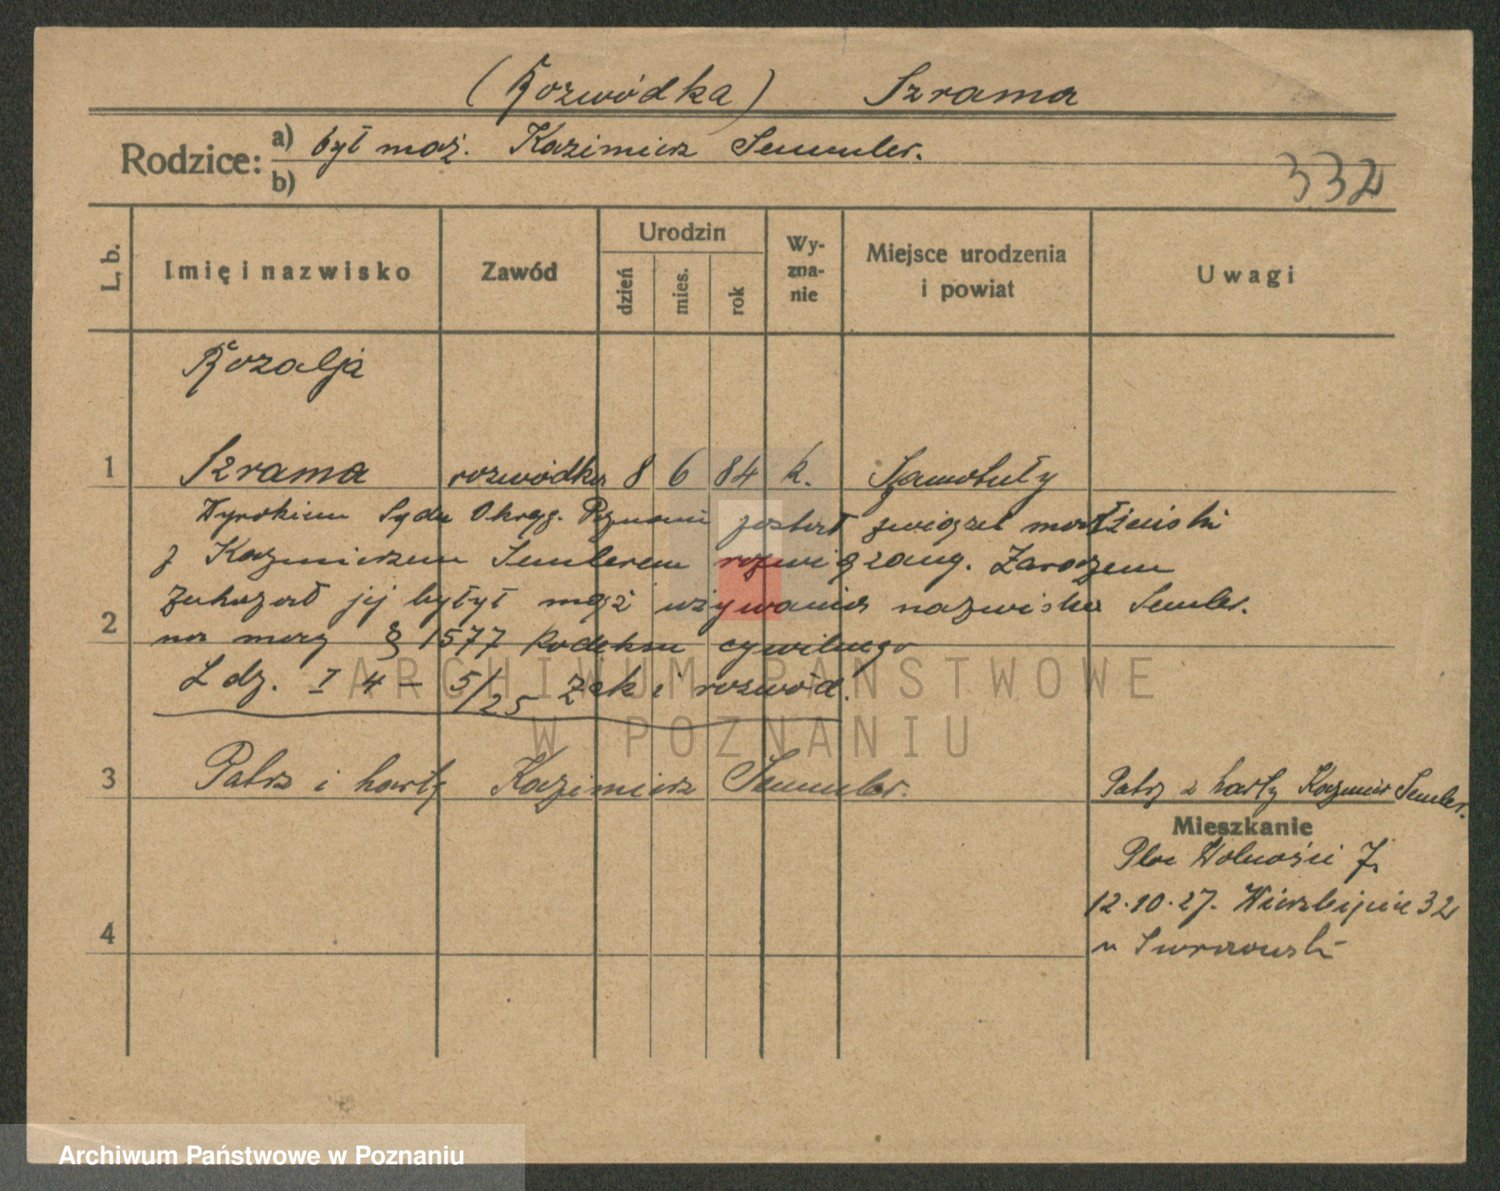 (Rozwódka) Szrama
Rodzice: a) był mąż. Kazimierz Semmler.
b)
332
L. b.
Imię i nazwisko
Zawód
Urodzin
dzień
mies.
rok
Wy-
zna-
nie
Miejsce urodzenia
i powiat
Uwagi
Rozalja
1 Szrama rozwódka 8 6 84 k. Szamotuły
Wyrokiem Sądu Okręg. Poznań został związek małżeński
z Kazimierzem Semlerem rozwiązany. Zarazem
zakazał jej były mąż używania nazwiska Semler.
2 na mocy § 1577 Kodeksu cywilnego
L dz. I 4 - 5/25 Zak i rozwód.
3 Patrz i karty Kazimierz Semmler.
Patrz z karty Kazimierz Semler.
Mieszkanie
Plac Wolności 7.
12.10.27. Wierzbięcice 32
u
4
ARCHIWUM PAŃSTWOWE
W POZNANIU
Archiwum Państwowe w Poznaniu